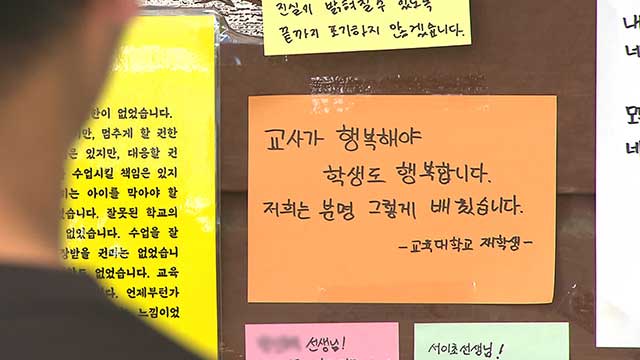 진실이 밝혀질 수 있도록
끝까지 포기하지 않겠습니다.
없었습니다.
멈추게 할 권한
있지만, 대응할 권
수업시킬 책임은 있지
아이를 막아야 할
잘못된 학교의
없었습니다. 수업을 잘
권리는 없었습니
없었습니다. 교육
언제부턴가
느낌이었
교사가 행복해야
학생도 행복합니다.
저희는 분명 그렇게 배웠습니다.
-교육대학교 재학생-
선생님!
서이초선생님!